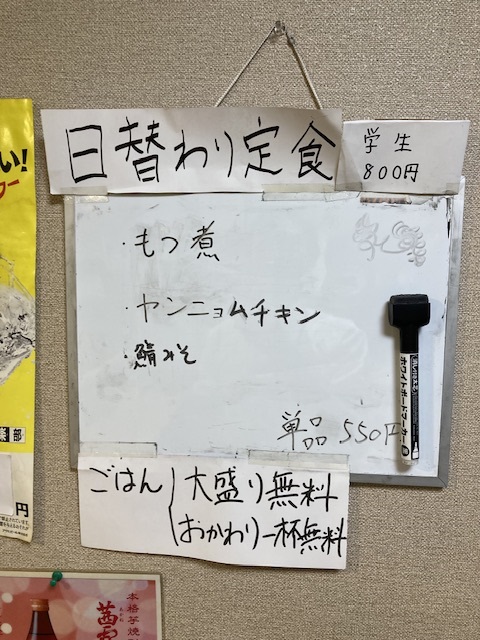 日替わり定食
学生
800円
・もつ煮
・ヤンニョムチキン
・鯖みそ
単品 550円
ホワイトボードマーカー
ごはん
大盛り無料
おかわり一杯無料
い!
円
本格芋焼
茜